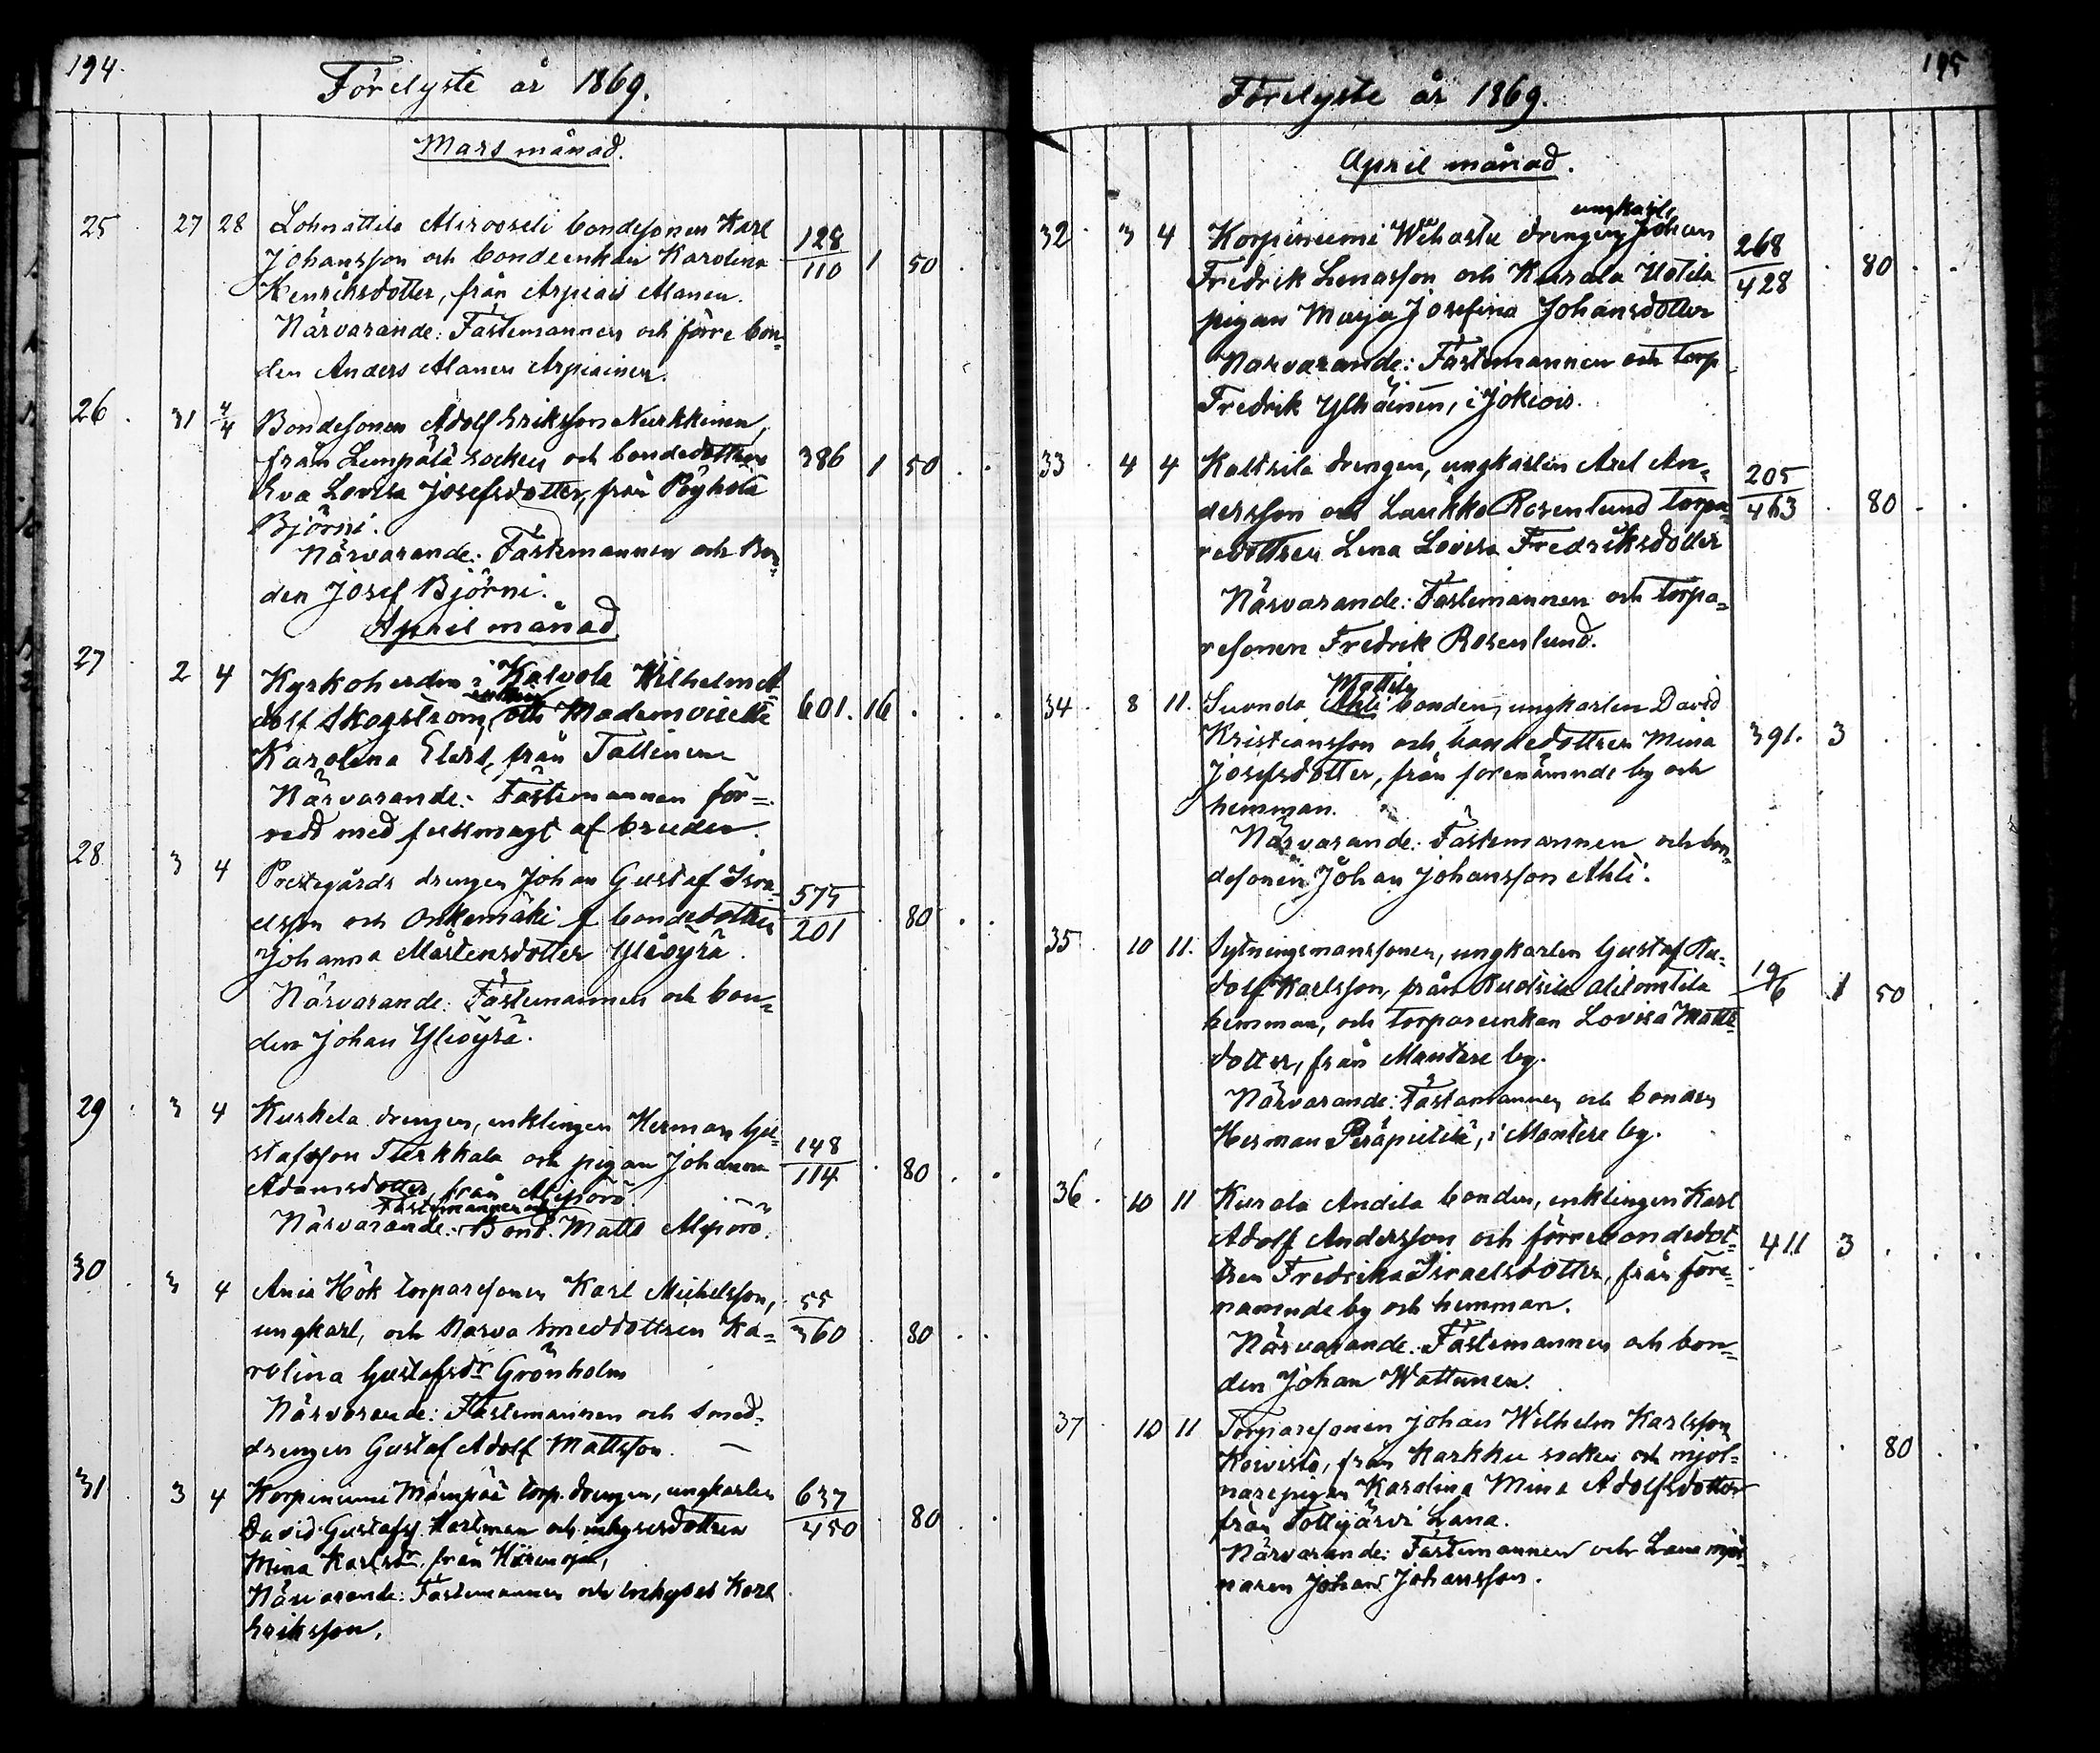 194.
Förelyste år 1869.
Mars månad.
25 27 28 Lohnattila Alirooseli bondesonen Karl 128
Johansson och bondeenkan Karolina 110 1 50
Henriksdotter, från Arpiais Alanen.
Närvarande: Fästemannen och förre bon-
den Anders Alanen Arpiainen.
26 31 4/4 Bondesonen Adolf Eriksson Nurkkinen,
från Lempälä socken och bondedottren 386 1 50
Eva Lovisa Josefsdotter, från Pöyhölä
Björni.
Närvarande: Fästemannen och Bon-
den Josef Björni.
April månad
27 2 4 Kyrkoherden i Kalvola Wilhelm A
dolf Skogström, och Mademoiselle 601. 16
Karolina Elers, från Tallinen
Närvarande: Fästemannen för-
sedd med fullmagt af bruden.
28 3 4 Prestegårds drengen Johan Gustaf Isra-
elsson och Onkemäki bondedottren 575/201 80
Johanna Mårtensdotter Yliöyrä.
Närvarande: Fästemannen och bon-
den Johan Yliöyrä.
29 3 4 Kurkela drengen, enklingen Herman Gu-
stafsson Turkkala och pigan Johanna 148/114 80
Adamsdotter, från Alipörö
Fästemannen och
Närvarande: Bond. Matts Alipörö.
30 3 4 Ania Hök torparsonen Karl Michelsson, 55
ungkarl, och Narva smeddottren Ka- 360 80
rolina Gustafsdr Grönholm
Närvarande: Fästemannen och smed-
drengen Gustaf Adolf Mattsson.
31 3 4 Korpiniemi torp. drengen, ungkarlen 637
David Gustafss. Hartman och inhysesdottren 450 80
Mina Karlsdr, från
Närvarande: Fästemannen och inhyses Karl
Eriksson.
195
Förelyste år 1869.
April månad.
ungkarlen
32 3 4 Korpiniemi drengen Johan 268
Fredrik Lenasson och Kurala Uotila 428 80
pigan Marja Josefina Johansdotter
Närvarande: Fästemannen och torp
Fredrik Ylhäinen, i Jokiois.
33 4 4 Kaltsila drengen, ungkarlen Axel An- 205
dersson och Laukko Rosenlund torpa- 463 80
redottren Lena Lovisa Fredriksdotter
Närvarande: Fästemannen och torpa-
resonen Fredrik Rosenlund.
Mattila
34 8 11. Suonola Ahli bonden, ungkarlen David
Kristiansson och bondedottren Mina 391. 3
Josefsdotter, från forenämnde by och
hemman.
Närvarande: Fästemannen och bon-
desonen Johan Johansson Ahli.
35 10 11. Sytningsmanssonen, ungkarlen Gustaf Ru-
dolf Karlsson, från Alitomtila 19/6 1 50
hemman, och torpareenkan Lovisa Matts-
dotter, från Mantere by.
Närvarande: Fästemannen och bonden
Herman Peräpietilä, i Mantere by.
36 10 11 Kurala Andila bonden, enklingen Karl
Adolf Andersson och förre bondedot- 411 3
tren Fredrika Israelsdotter, från före-
nämnde by och hemman.
Närvarande: Fästemannen och bon-
den Johan Wattunen.
37 10 11 Torparesonen Johan Wilhelm Karlsson
Koivisto, från Karkku socken och mjöl- 80
narepigan Karolina Mina Adolfsdotter
från Tottijärvi Lana.
Närvarande: Fästemannen och Lana mjöl-
naren Johan Johansson.